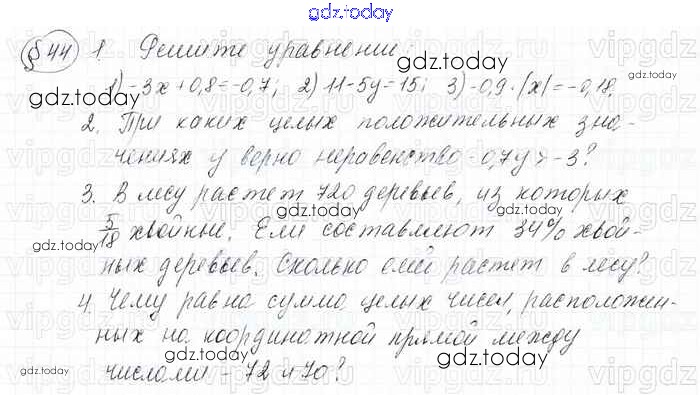 gdz.today
§ 44 1. Решите уравнение:
1) -3x + 0,8 = -0,7; 2) 11 - 5y = 15; 3) -0,9 · |x| = -0,18.
gdz.today gdz.today gdz.today
2. При каких целых положительных зна-
чениях у верно неравенство -0,7y > -3?
gdz.today gdz.today
3. В лесу растет 720 деревьев, из которых
5/18 хвойные. Ели составляют 34% хвой-
gdz.today gdz.today
ных деревьев. Сколько елей растет в лесу?
gdz.today
4. Чему равна сумма целых чисел, расположен-
ных на координатной прямой между
gdz.today gdz.today
числами -72 и 70?
gdz.today